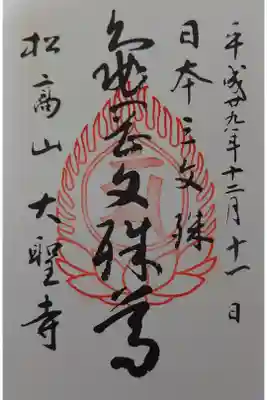 平成廿九年十二月十一日
日本三文殊
亀岡文殊尊
松高山 大聖寺